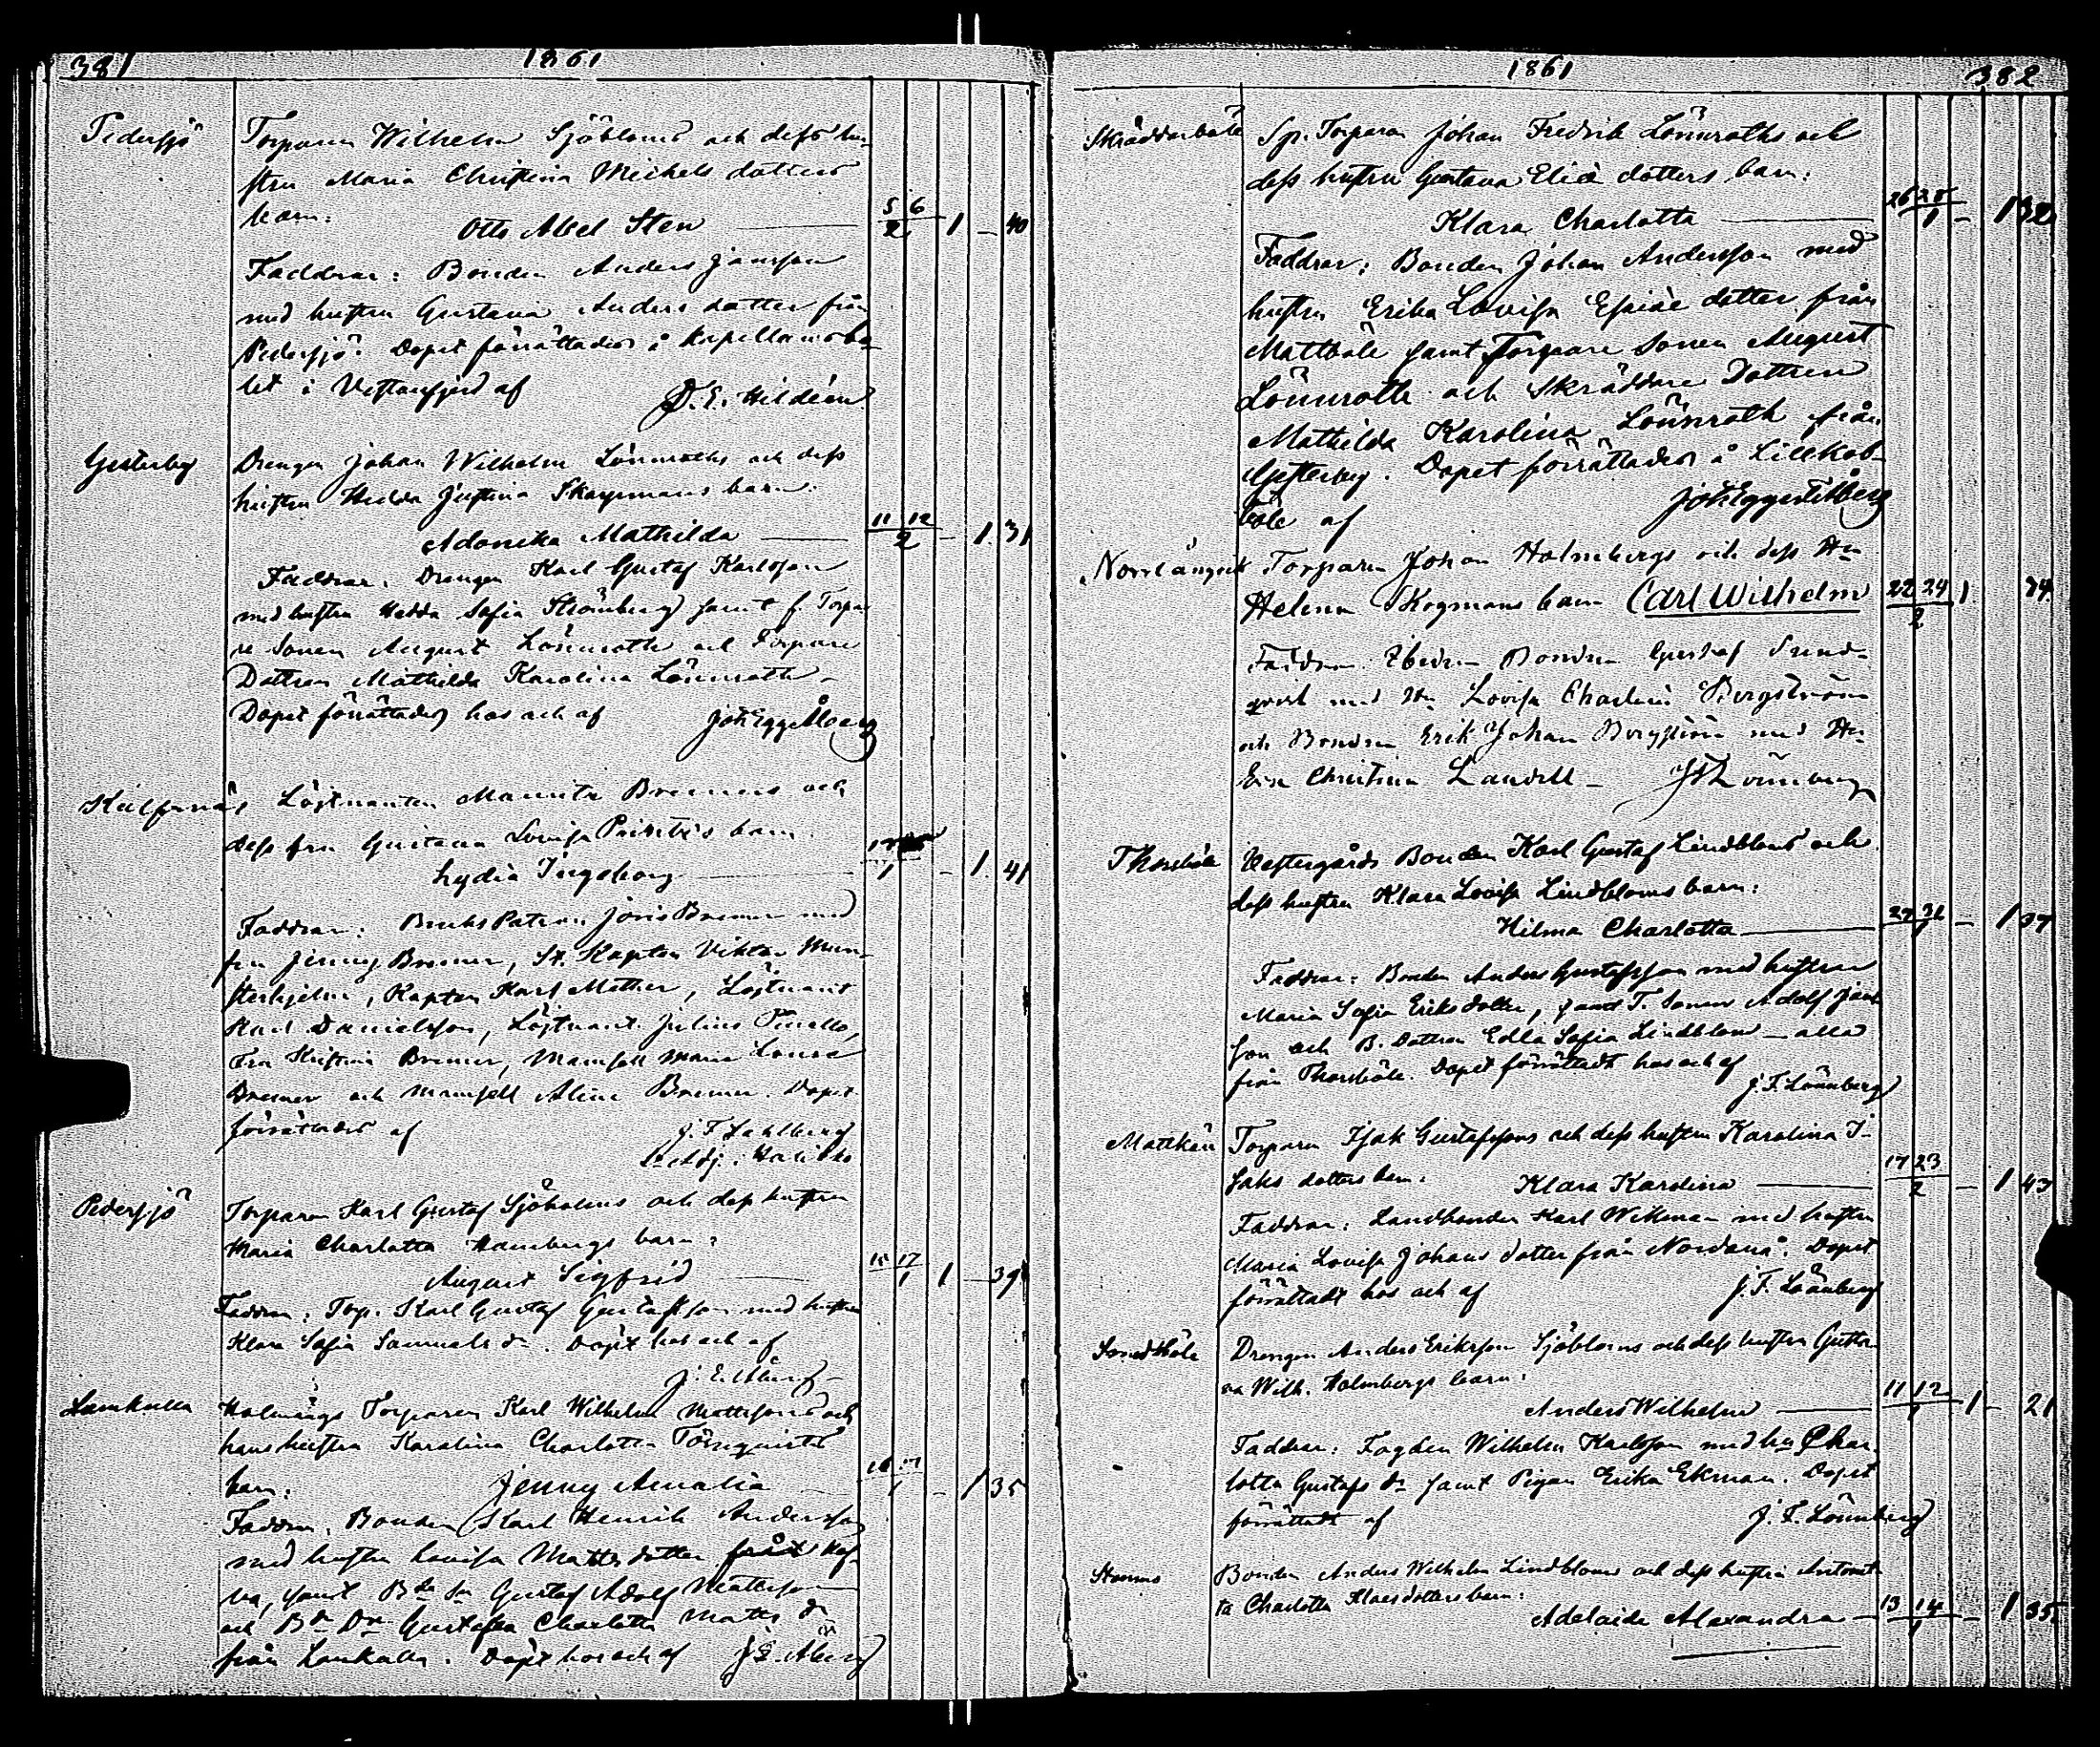 381 1861
Pedersjö Torparen Wilhelm Sjöbloms och dess hu-
stru Maria Christina Michels dotters
barn:
Otto Abel Sten 5 6/2 1 – 40
Faddrar: Bonden Anders Jansson
med hustru Gustava Anders dotter från
Pedersjö. Dopet förrättades å Kapellansbo-
let i Vestanfjerd af D. E. Hildeen
Gesterby Drengen Johan Wilhelm Lönnroths och dess
hustru Hedda Justina Skogmans barn.
Adonika Mathilda 11 12/2 – 1. 31
Faddrar: Drengen Karl Gustaf Karlsson
med hustru Hedda Sofia Strömberg samt f. Torpa-
re Sonen August Lönnroth och Torpare
Dottren Mathilda Karolina Lönnroth –
Dopet förrättades hos och af Joh Egge Åberg
Löjtnanten Mauritz Bremers och
dess fru Gustava Lovisa barn.
Lydia Ingeborg 1 – 1. 41
Faddrar: Bruks Patron Joris Bremer med
fru Jenny Bremer, St. Kapten Viktor Mun-
sterhjelm, Kapten Karl Mether, Löjtnant
Karl Danielsson, Löjtnant Julius
Fru Kristina Bremer, Mamsell Maria Lovisa
Bremer och Mamsell Alina Bremer. Dopet
förrättades af J. F. Sahlberg
Adj. i Halikko
Pedersjö Torparen Karl Gustaf Sjöholms och dess hustru
Maria Charlotta Hambergs barn:
August Sigfrid 15 17/1 1 – 39
Faddrar: Torp. Karl Gustaf Gustafsson med hustru
Klara Sofia Samuels dr. Döpt hos och af
J. E. Åberg
Lamkulla Holmängs Torparen Karl Wilhelm Mattssons och
hans hustru Karolina Charlotta Törnqvists
barn: Jenny Amalia 1 – 1 35
Faddrar: Bonden Karl Henrik Andersson
med hustru Lovisa Matts dotter från
samt Bde Sn Gustaf Adolf Mattsson
och Bde Dn Gustafva Charlotta Matts dr
från Lamkulla. Döpt hos och af J E. Åberg
1861 382
Skräddarböle Sp. Torparen Johan Fredrik Lönnroths och
dess hustru Gustava Eliæ dotters barn:
Klara Charlotta 26 28/1 – 1 32
Faddrar: Bonden Johan Andersson med
hustru Erika Lovisa Esaiæ dotter från
Mattböle samt Torpare Sonen August
Lönnroth och Skräddare Dottren
Mathilda Karolina Lönnroth från
Gesterby. Dopet förrättades å Lillkob-
böle af Joh Egge Åberg
Norrlångvik Torparen Johan Holmbergs och dess Hu
Helena Skogmans barn Carl Wilhelm 22 24/2 1 34.
Faddrar Bonden Gustaf Sund-
qvist med Hu Lovisa Bergström
och Bonden Erik Johan Bergström med Hu
Christina Landell – J F Lönnberg
Thorsböle Vestergårds Bonden Karl Gustaf Lindbloms och
dess hustru Klara Lovisa Lindbloms barn:
Hilma Charlotta – 1 37
Faddrar: Bonden Anders Gustafsson med hustrun
Maria Sofia Eriks dotter, samt T. Sonen Adolf Jans-
son och B. Dottren Edla Sofia Lindblom – alla
från Thorsböle. Dopet förrättadt hos och af
J. F. Lönnberg
Mattkärr Torparen Isak Gustafssons och dess hustru Karolina I-
saks dotters barn: Klara Karolina 17 23/2 – 1 43
Faddrar: Landbonden Karl Wikman med hustru
Maria Lovisa Johans dotter från Nordanå. Dopet
förrättadt hos och af J. F. Lönnberg
Smedsböle Drengen Anders Eriksson Sjöbloms och dess hustru Gusta-
va Wilh. Holmbergs barn:
Anders Wilhelm 11 12/1 1 – 21
Faddrar: Fogden Wilhelm Karlsson med hu Char-
lotta Gustafs dr samt Pigan Erika Ekman. Dopet
förrättadt af J. F. Lönnberg
Bonden Anders Wilhelm Lindbloms och dess hustru Antonet-
ta Charlotta Klaes dotters barn:
Adelaide Alexandra 13 14/1 – 1 35